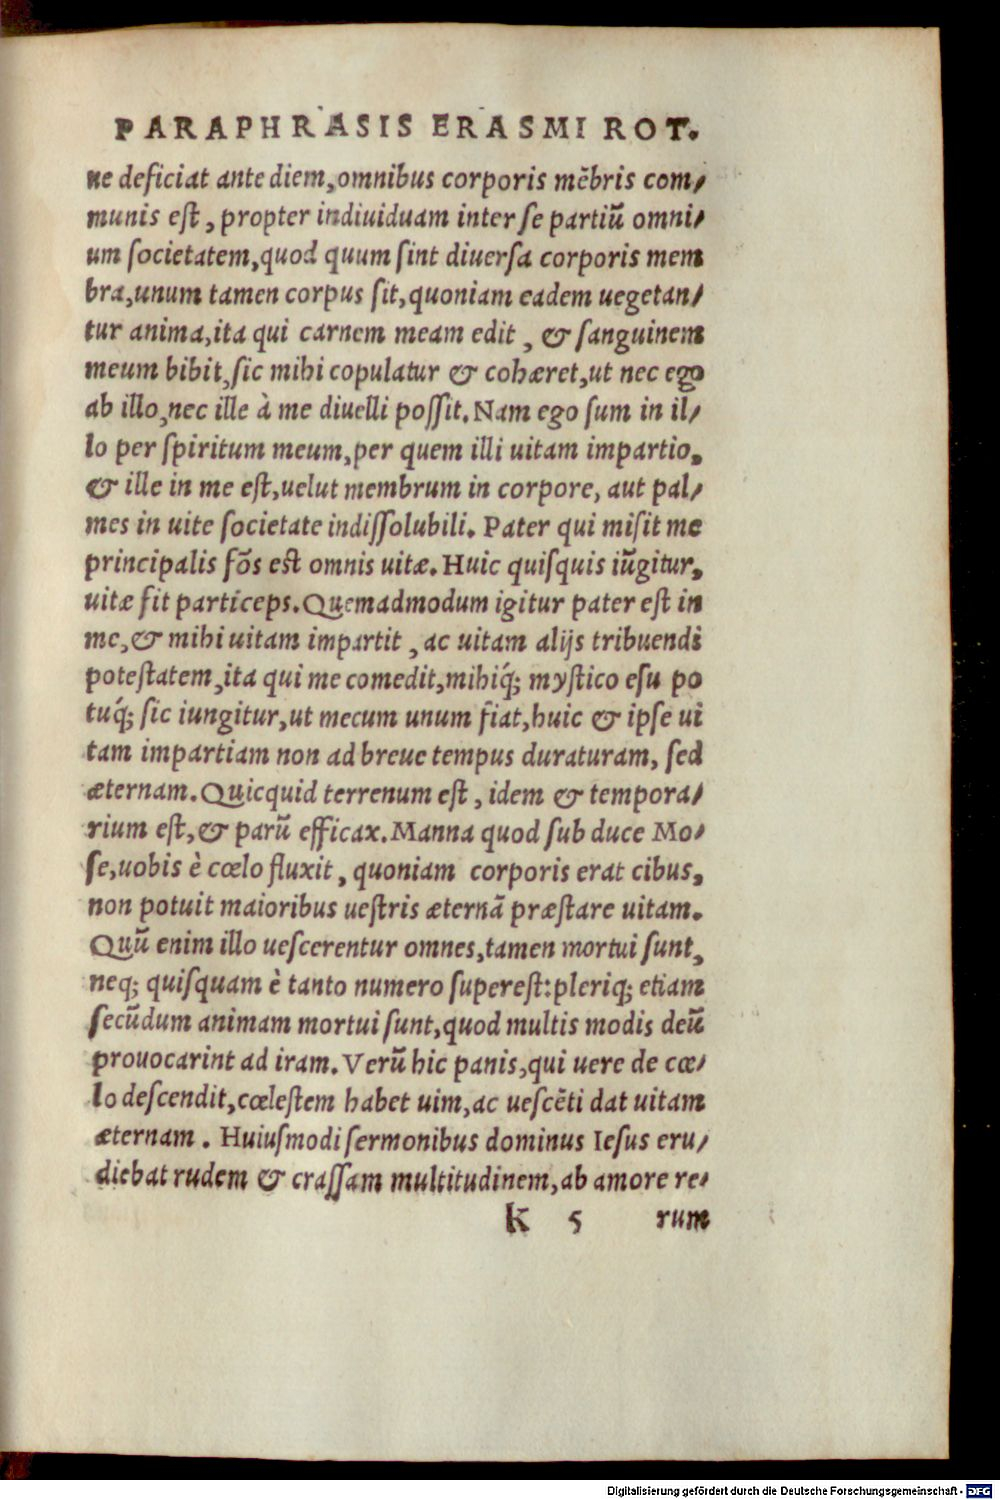 PARAPHRASIS ERASMI ROT.
ne deficiat ante diem, omnibus corporis mẽbris com/
munis est, propter indiuiduam inter se partiũ omni/
um societatem, quod quum sint diuersa corporis mem
bra, unum tamen corpus sit, quoniam eadem uegetan/
tur anima, ita qui carnem meam edit, & sanguinem
meum bibit, sic mihi copulatur & cohæret, ut nec ego
ab illo, nec ille à me diuelli possit. Nam ego sum in il/
lo per spiritum meum, per quem illi uitam impartio,
& ille in me est, uelut membrum in corpore, aut pal/
mes in uite societate indissolubili. Pater qui misit me
principalis fõs est omnis uitæ. Huic quisquis iũgitur,
uitæ fit particeps. Quemadmodum igitur pater est in
me, & mihi uitam impartit, ac uitam alijs tribuendi
potestatem, ita qui me comedit, mihiq́; mystico esu po
tuq́; sic iungitur, ut mecum unum fiat, huic & ipse ui
tam impartiam non ad breue tempus duraturam, sed
æternam. Quicquid terrenum est, idem & tempora/
rium est, & parũ efficax. Manna quod sub duce Mo/
se, uobis è cœlo fluxit, quoniam corporis erat cibus,
non potuit maioribus uestris æternã præstare uitam.
Quũ enim illo uescerentur omnes, tamen mortui sunt,
neq; quisquam è tanto numero superest: pleriq; etiam
secũdum animam mortui sunt, quod multis modis deũ
prouocarint ad iram. Verũ hic panis, qui uere de cœ/
lo descendit, cœlestem habet uim, ac uescẽti dat uitam
æternam. Huiusmodi sermonibus dominus Iesus eru/
diebat rudem & crassam multitudinem, ab amore re/
K 5 rum
Digitalisierung gefördert durch die Deutsche Forschungsgemeinschaft - DFG